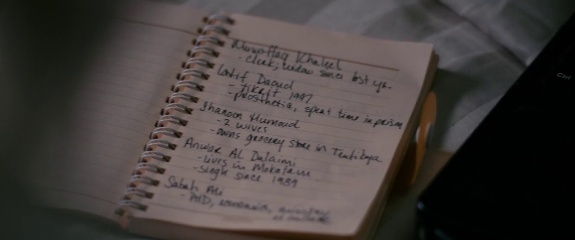 Muwaffaq Khaleel
- clerk, widow since last yr.
Latif Daoud
- Tikrit 1987
- prosthetia, spent time in prison
Humoud
- 2 wives
- owns grocery store in
Anwar AL Dalaimi
- lives in
- single since 1989
Sabah Ali
- PHD,
Ctrl